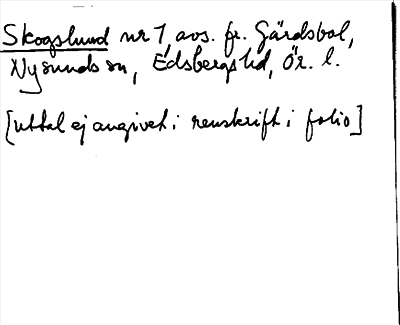 Skogslund nr 1, avs. fr. Gärdsbol,
Nysunds sn, Edsbergs hd, Ör. l.
[uttal ej angivet i renskrift i folio]